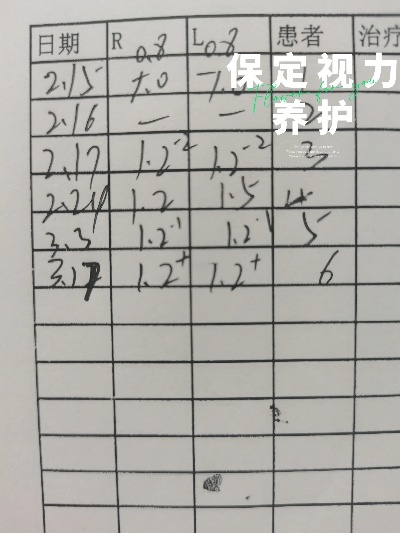 日期 R 0.8 L 0.8 患者 治疗
2.15 1.0
保定视力
2.16 — —
养护
2.17 1.2⁻² 1.2⁻² 3
2.24 1.2 1.5 4
3.3 1.2⁻¹ 1.2⁻¹ 5
3.17 1.2⁺ 1.2⁺ 6